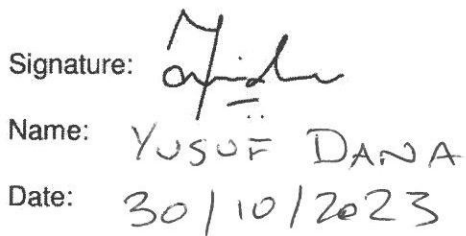 Signature:
Name: YUSUF DANA
Date: 30/10/2023